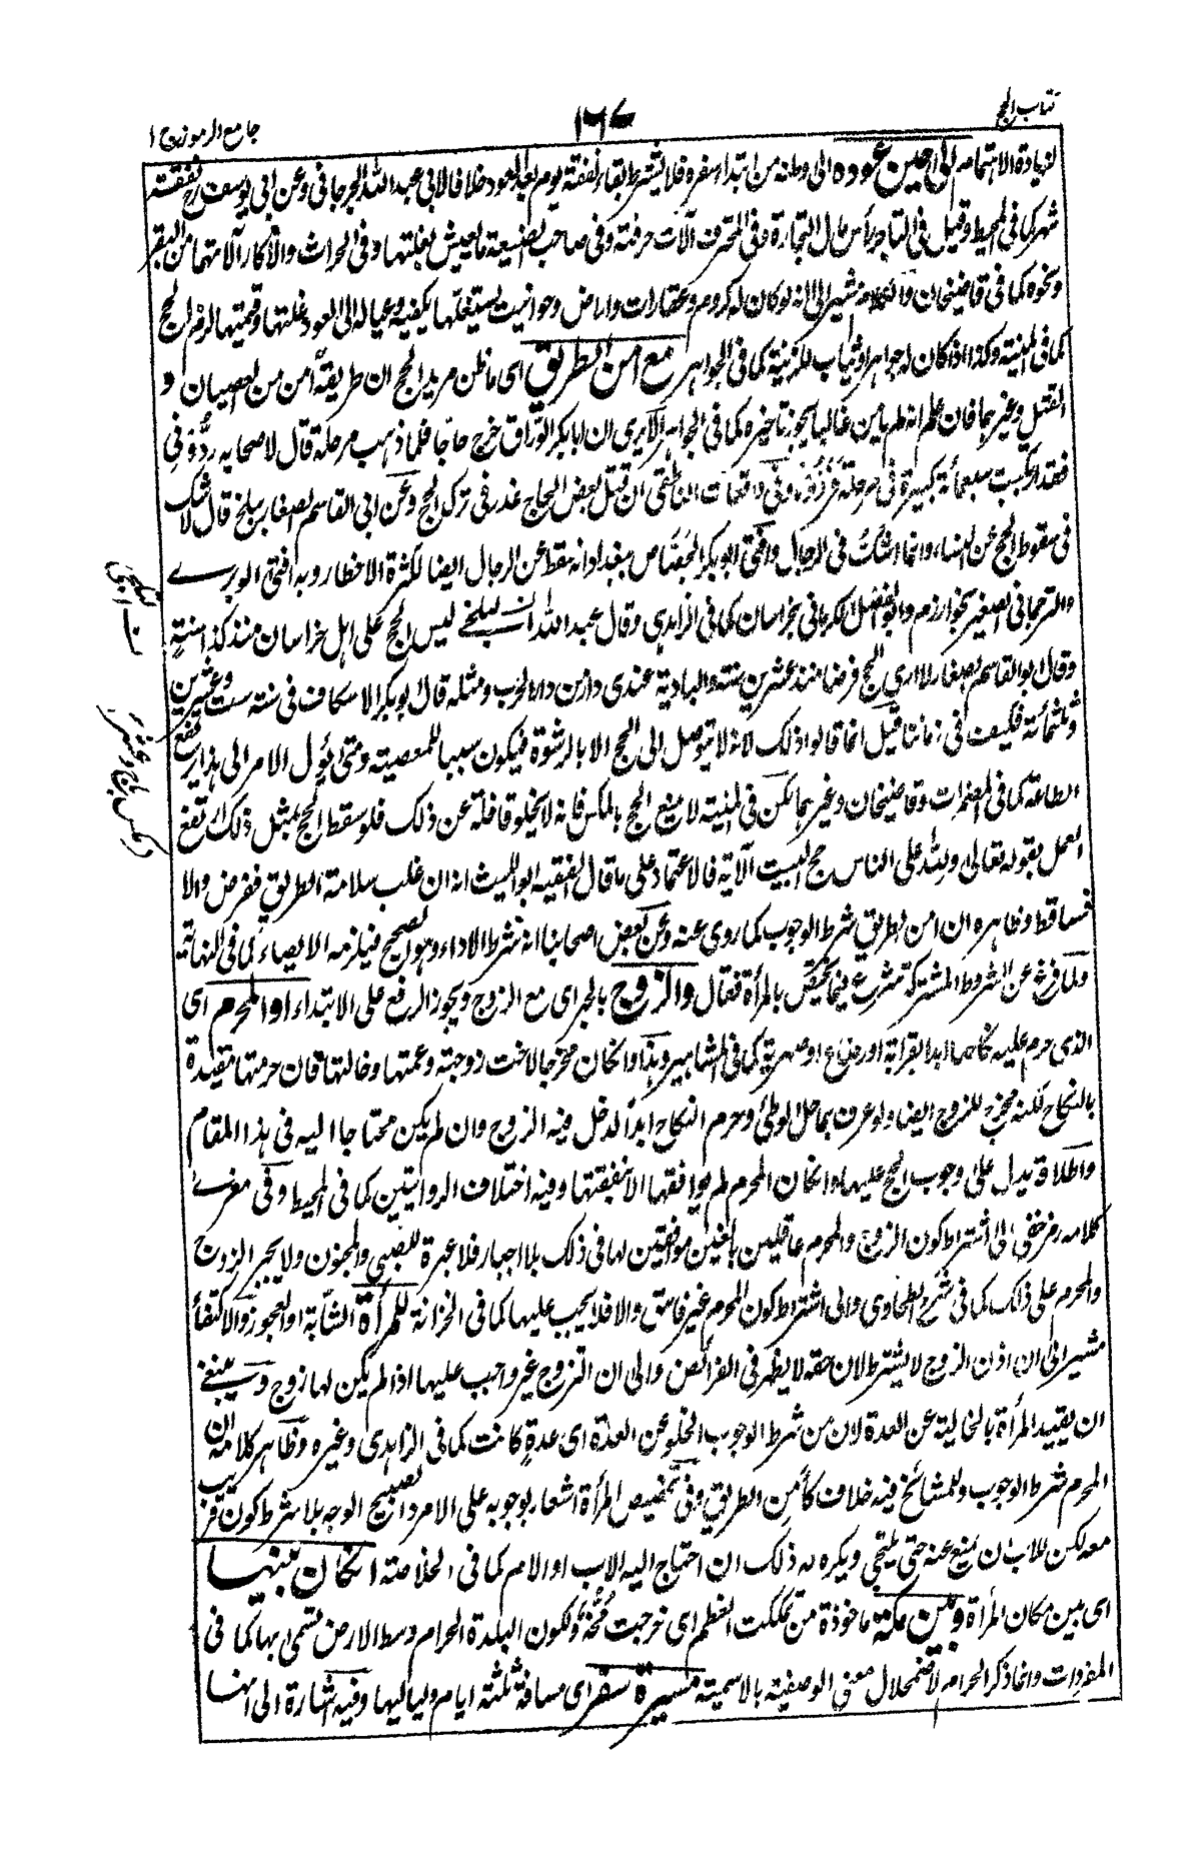 كتاب الحج
١٦٧
جامع الرموز ج ١
لزيادة الاهتمام الى حين عوده الى وطنه من ابتداء سفره فلا يشترط بقاء نفقة يوم بعد العود خلافا لابي عبد الله الجرجاني وعن ابي يوسف رح نفقة
شهر كما في المحيط وقيل في التاجر رأس مال التجارة وفي المحترف آلات حرفته وفي صاحب الضيعة ما يعيش بغلتها وفي الحراث والاكار آلاتهما من البقر
ونحوه كما في قاضيخان والكلام مشير الى انه لو كان له كروم وعقارات واراض وحوانيت يستغلها يكفيه وعياله الى العود غلتها وقيمتها لزم الحج
كما في المنية وكذا اذا كان له جواهر او ثياب للزينة كما في الجواهر مع امن الطريق اى ما ظن مريد الحج ان طريقه آمن من العصيان و
القتل وغيرهما فان علم انه لم يأمن غالبا يجوز تاخيره كما في الجواهر الا يرى ان ابا بكر الوراق خرج حاجا فلما ذهب مرحلة قال لاصحابه ردوني
فقد ارتكبت سبعمأة كبيرة في مرحلة فردوه وفي واقعات الناطفي ان قتل بعض الحجاج عذر في ترك الحج وعن ابي القاسم الصفار ببلخ قال لا شك
في سقوط الحج عن النساء وانما اشك في الرجال وافتى ابو بكر الجصاص ببغداد انه سقط عن الرجال ايضا لكثرة الاخطار وبه افتى الوبرى
والترجماني الصغير بخوارزم وابو الفضل الكرماني بخراسان كما في الزاهدي وقال عبد الله البلخي ليس الحج على اهل خراسان منذ كذا سنة
وقال ابو القاسم الصفار لا ارى الحج فرضا منذ عشرين سنة والبادية عندى دار من دار الحرب ومثله قال ابو بكر الاسكاف في سنة ست وعشرين
وثلثمائة فكيف في زماننا قيل انما قالوا ذلك لانه لا يتوصل الى الحج الا بالرشوة فيكون سببا للمعصية ومتى يؤول الامر الى هذا يرتفع
الطاعة كما في المضمرات وقاضيخان وغيرهما لكن في المنية لا يمنع الحج بالمكس فانه لا يخلو قافلة عن ذلك فلو سقط الحج بمثل ذلك لارتفع
العمل بقوله تعالى ولله على الناس حج البيت الآية فالاعتماد على ما قال الفقيه ابو الليث انه ان غلب سلامة الطريق ففرض والا
فساقط وظاهره ان امن الطريق شرط الوجوب كما روى عنه وعن بعض اصحابنا انه شرط الاداء وهو الصحيح فيلزمه الايصاء كما في النهاية
ولما فرغ عن الشروط المشتركة شرع فيما يختص بالمرأة فقال والزوج بالجر اى مع الزوج ويجوز الرفع على الابتداء او المحرم اى
الذى حرم عليه نكاحها ابدا بقرابة او رضاع او صهرية كما في المشاهير وهذا وان كان مخرجا لاخت زوجته وعمتها وخالتها فان حرمتها مقيدة
بالنكاح لكنه مخرج للزوج ايضا ولو عرف بما حل الوطئ وحرم النكاح ابدا لدخل فيه الزوج وان لم يكن محتاجا اليه في هذا المقام
واطلاقه يدل على وجوب الحج عليها وان كان المحرم لم يوافقها الا بنفقتها وفيه اختلاف الروايتين كما في المحيط وفي مغرى
كلامه رمز خفي الى اشتراط كون الزوج والمحرم عاقلين بالغين موافقين لها في ذلك بلا اجبار فلا عبرة للصبي والمجنون ولا يجبر الزوج
والمحرم على ذلك كما في شرح الطحاوى والى اشتراط كون المحرم غير فاسق والا فلا يجب عليها كما في الخزانة للمرأة الشابة او العجوز والاكتفاء
مشير الى ان اذن الزوج لا يشترط لان حقه لا يظهر في الفرائض والى ان التزوج غير واجب عليها اذا لم يكن لها زوج وينبغي
ان يقيد المرأة بالخالية عن العدة لان من شرط الوجوب الخلو عن العدة اى عدة كانت كما في الزاهدى وغيره وظاهر كلامه ان
المحرم شرط الوجوب وللمشائخ فيه خلاف كأمن الطريق وفي تخصيص المرأة اشعار بوجوبه على الامرد الصبيح الوجه بلا شرط كون قريب
معه لكن للاب ان يمنع عنه حتى يلتحي ويكره له ذلك ان احتاج اليه الاب او الام كما في الخلاصة ان كان بينها
اى بين مكان المرأة وبين مكة ماخوذة من تمككت العظم اى خرجت مخه ولكون البلدة الحرام وسط الارض تسمى بها كما في
المفردات وانما ذكر الحرام لاضمحلال معنى الوصفية بالاسمية مسيرة سفر اى مسافة ثلثة ايام ولياليها وفيه اشارة الى انها